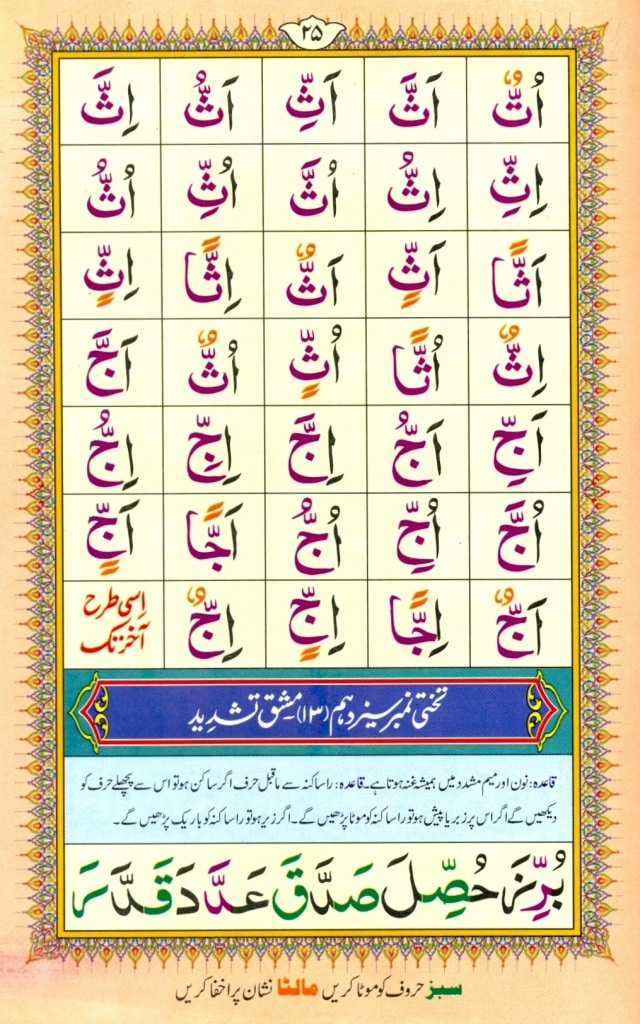 ۲۵
اُتٌّ اَثَّ اَثِّ اَثُّ اِثَّ
اِثِّ اِثُّ اُثَّ اُثِّ اُثُّ
اَثًّا اَثٍّ اَثٌّ اِثًّا اِثٍّ
اِثٌّ اُثًّا اُثٍّ اُثٌّ اَجَّ
اَجِّ اَجُّ اِجَّ اِجِّ اِجُّ
اُجَّ اُجِّ اُجُّ اَجًّا اَجٍّ
اَجٌّ اِجًّا اِجٍّ اِجٌّ اِسی طرح
آخر تک
تختی نمبر سیزدہم (۱۳)۔ مشق تشدِید
قاعدہ: نون اور میم مشدد میں ہمیشہ غنہ ہوتا ہے۔ قاعدہ: را ساکنہ سے ماقبل حرف اگر ساکن ہو تو اس سے پچھلے حرف کو
دیکھیں گے اگر اس پر زبر یا پیش ہو تو را ساکنہ کو موٹا پڑھیں گے۔ اگر زیر ہو تو را ساکنہ کو باریک پڑھیں گے۔
بُرِّزَ حُصِّلَ صَدَّقَ عَدَّدَ قَدَّرَ
سبز حروف کو موٹا کریں مالٹا نشان پر اخفا کریں